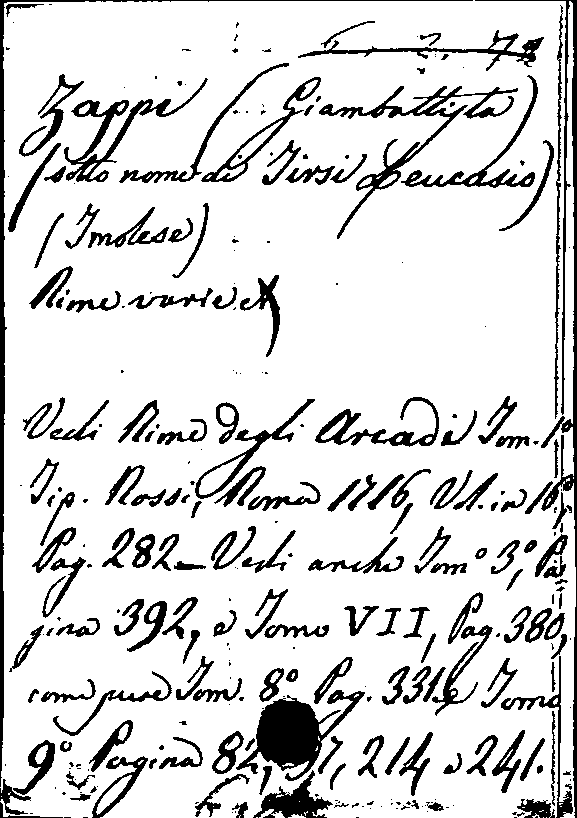 6. 2. 7
Zappi (Giambattista)
(sotto nome di Tirsi Leucasio)
(Imolese)
Rime varie
Vedi Rime degli Arcadi Tom. 1º
Tip. Rossi, Roma 1716, Vol. in 16º,
Pag. 282 — Vedi anche Tomº 3º, Pa
gina 392, e Tomo VII, Pag. 380,
come pure Tom. 8º Pag. 331 e Tomo
9º Pagina 82, 214 e 241.